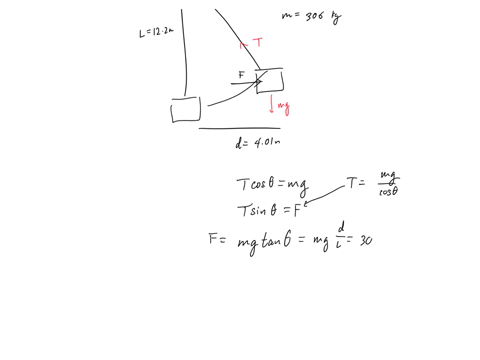 m = 306 kg
L = 12.2m
T
F
mg
d = 4.01m
T cosθ = mg
T = mg/cosθ
T sinθ = F
F = mg tanθ = mg d/L = 30